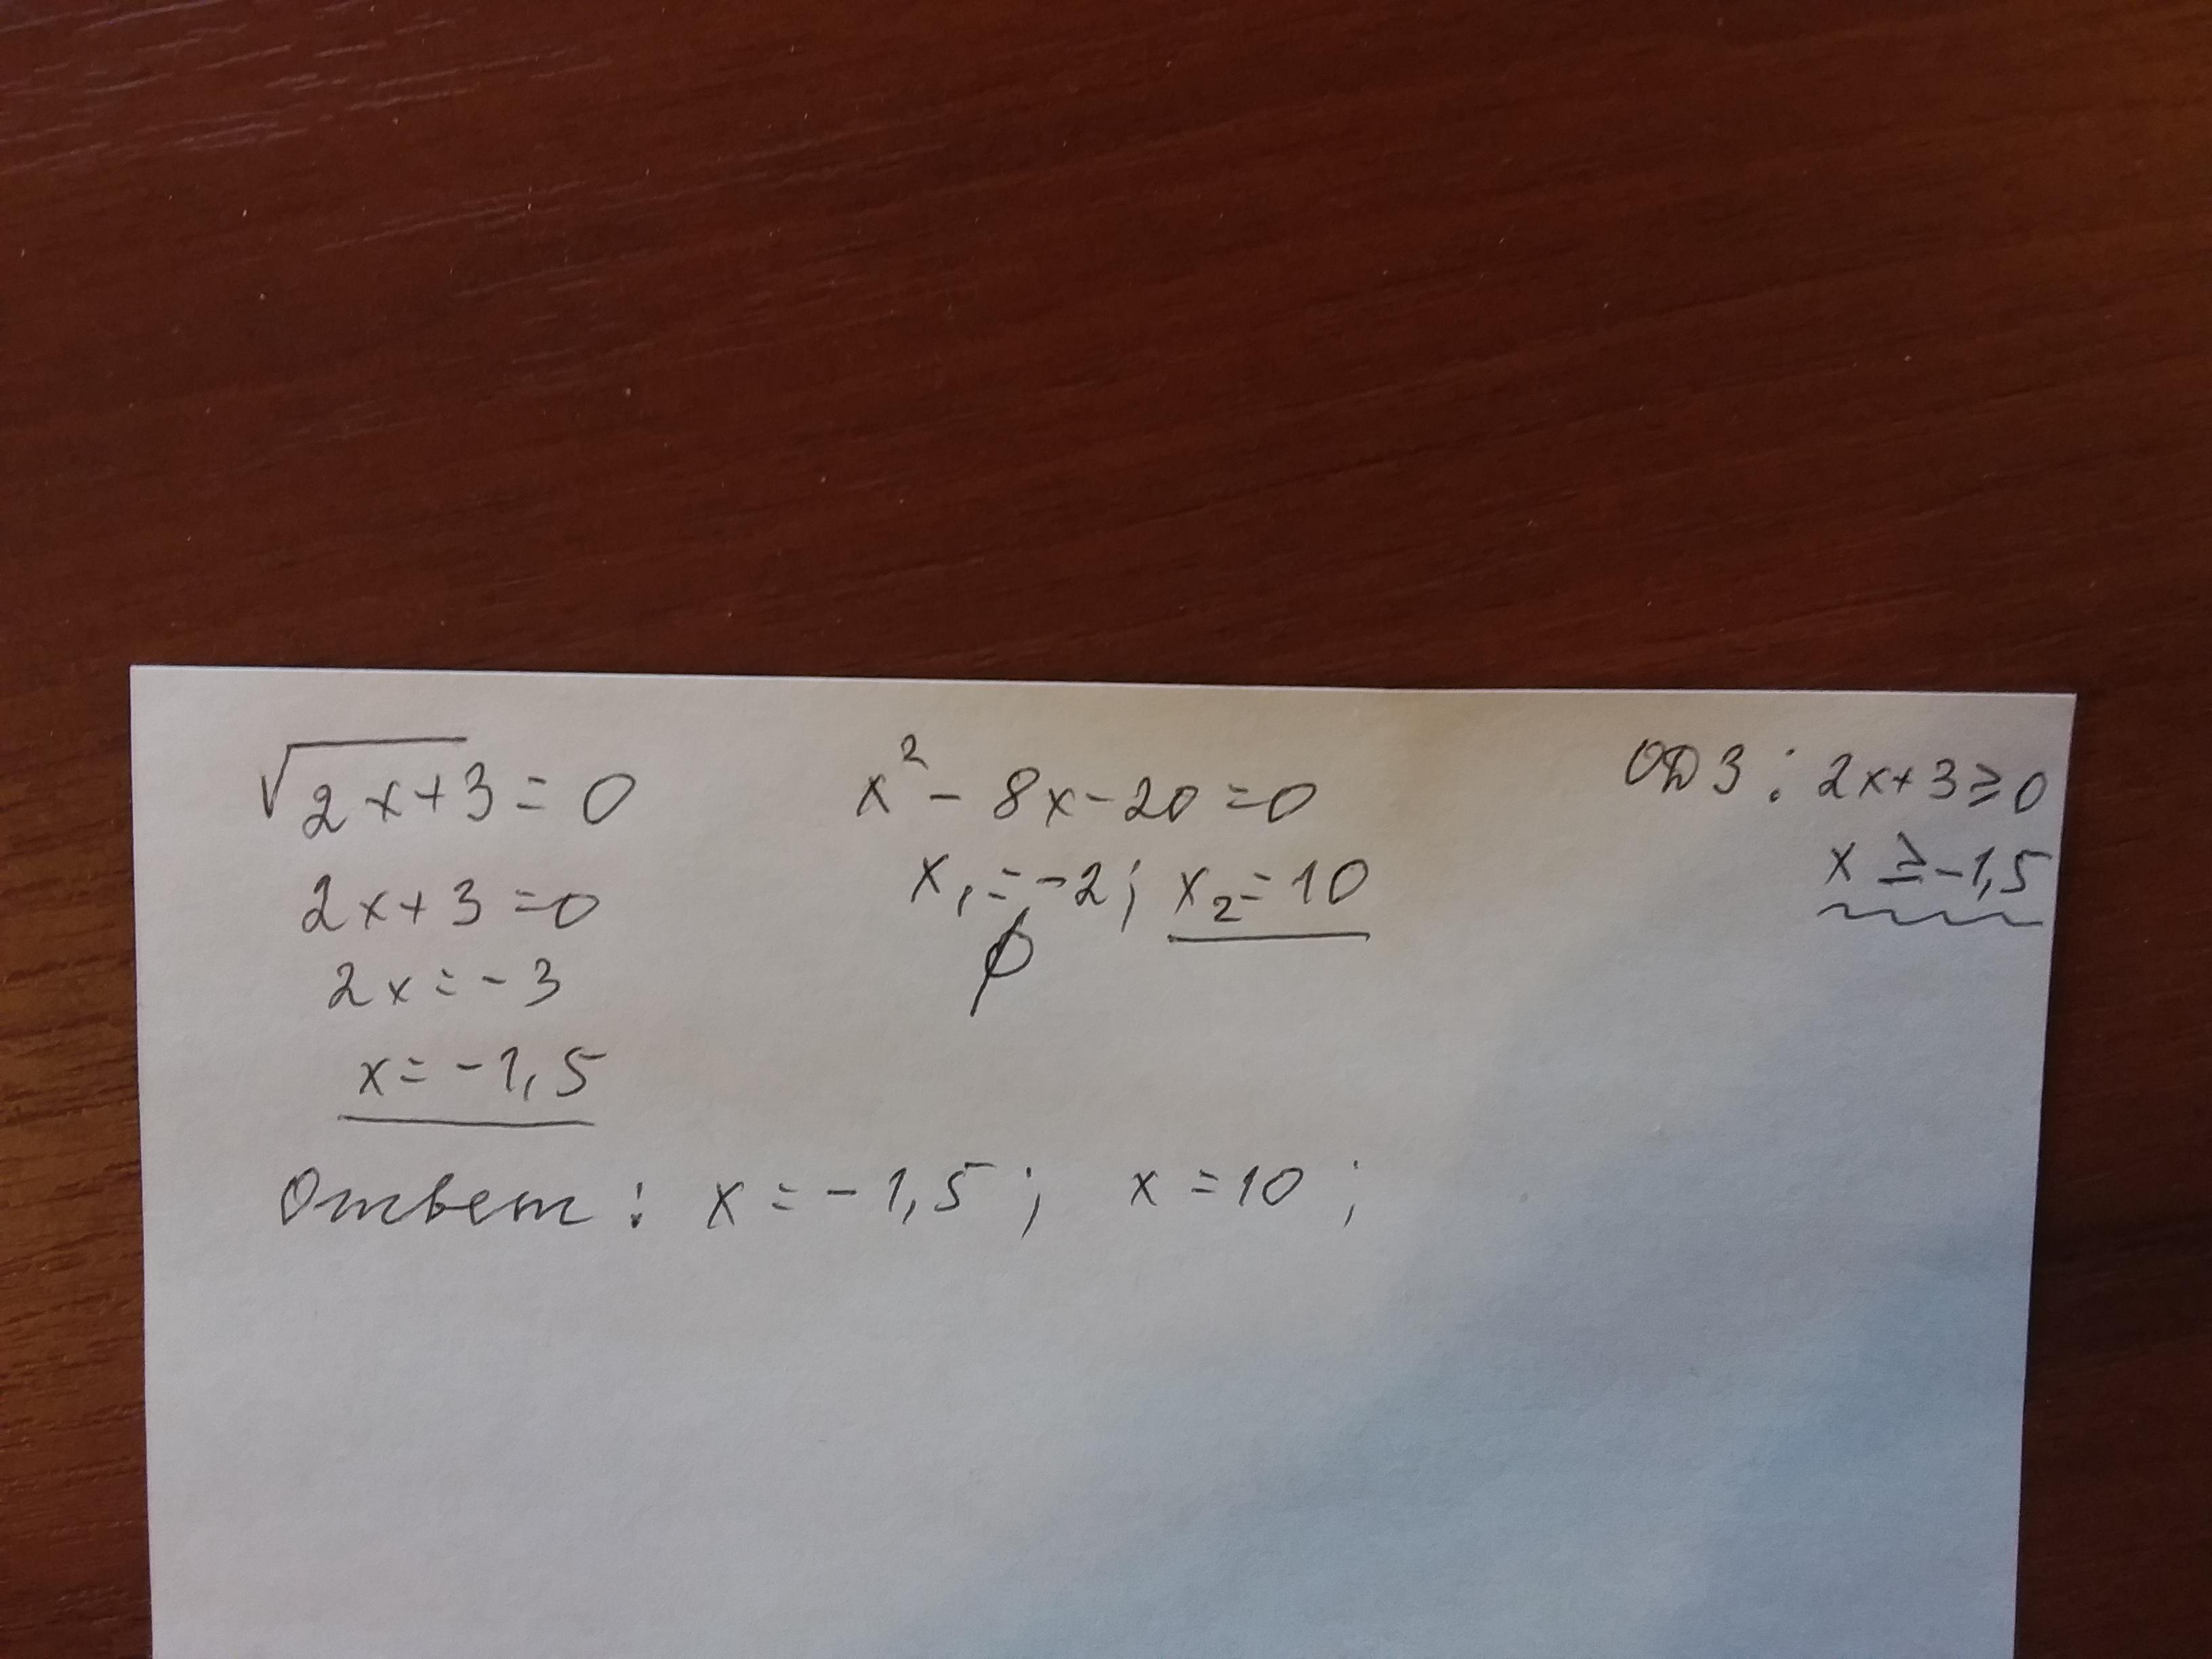 √2x+3 = 0
2x+3=0
2x=-3
x=-1,5
x²-8x-20=0
x₁=-2; x₂=10
∅
ОДЗ: 2x+3≥0
x≥-1,5
Ответ: x=-1,5; x=10;